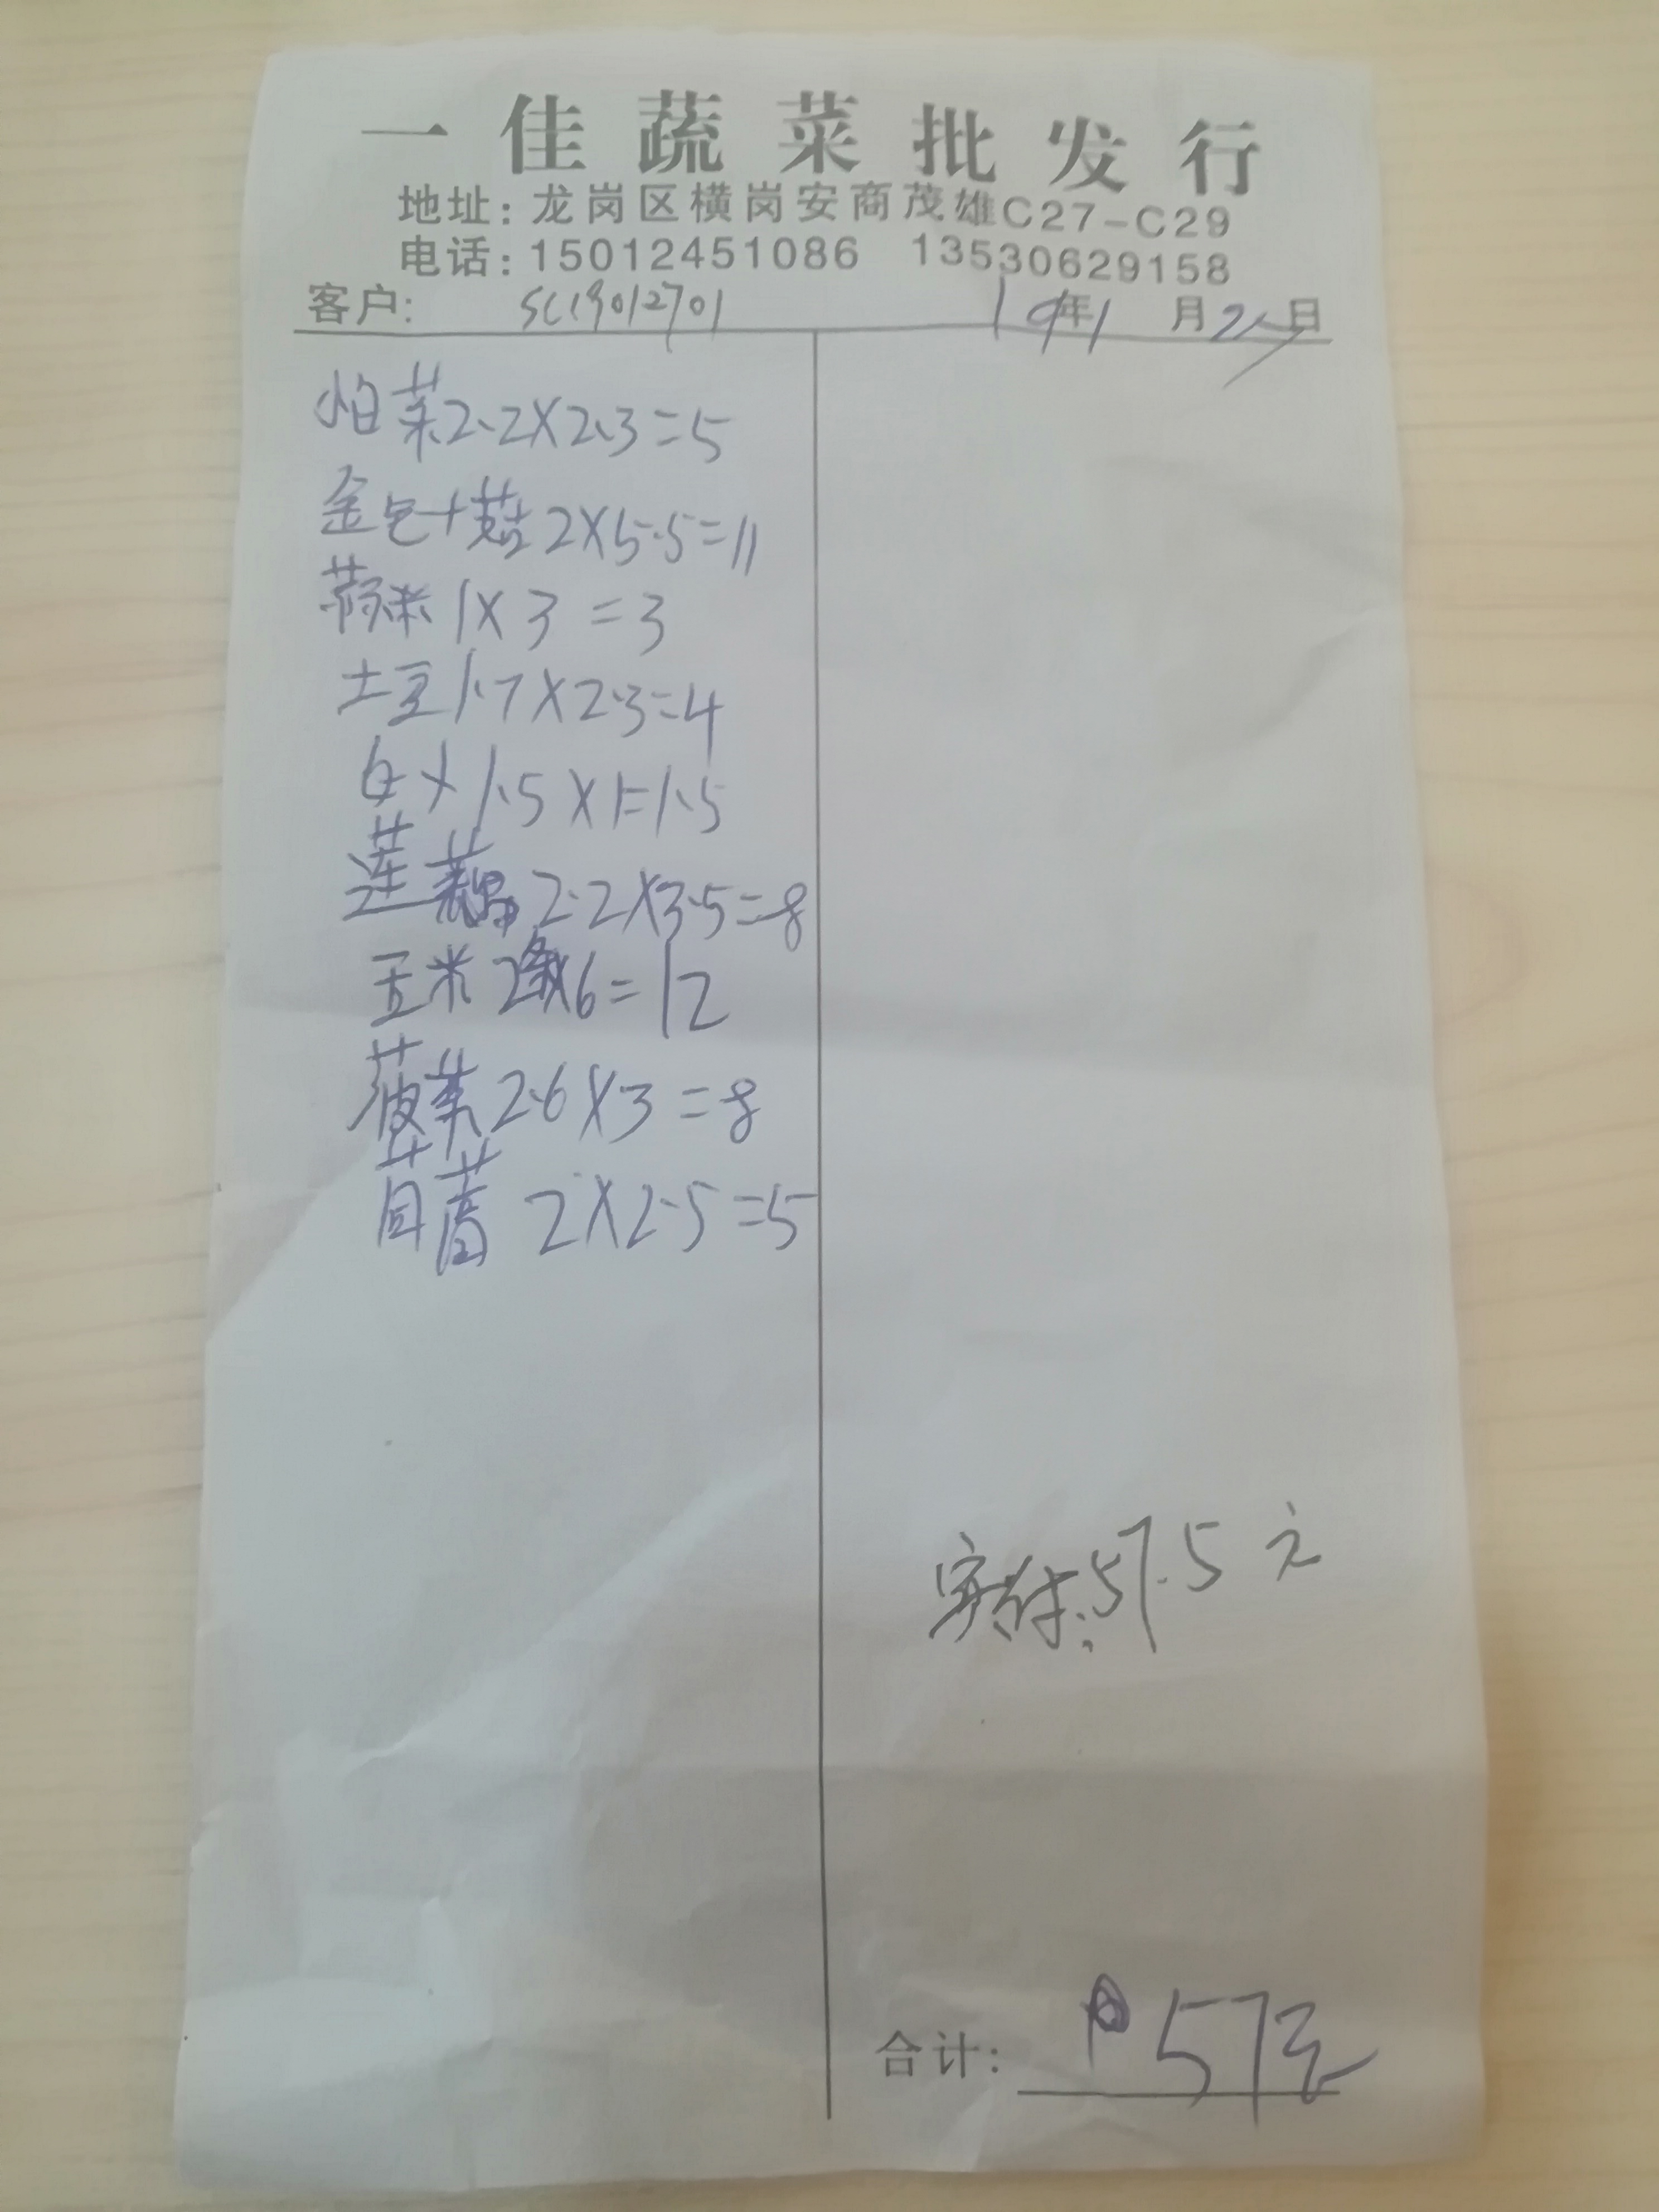 一佳蔬菜批发行
地址:龙岗区横岗安商茂雄C27-C29
电话:15012451086 13530629158
客户: SC19012701 19年1月27日
小白菜2.2X2.3=5
金包+菇2X5.5=11
蒜米1X3=3
土豆1.7X2.3=4
白 1.5X1=1.5
莲藕2.2X3.5=8
玉米2条X6=12
菠菜2.6X3=8
茼蒿2X2.5=5
实付:57.5元
合计: 57元